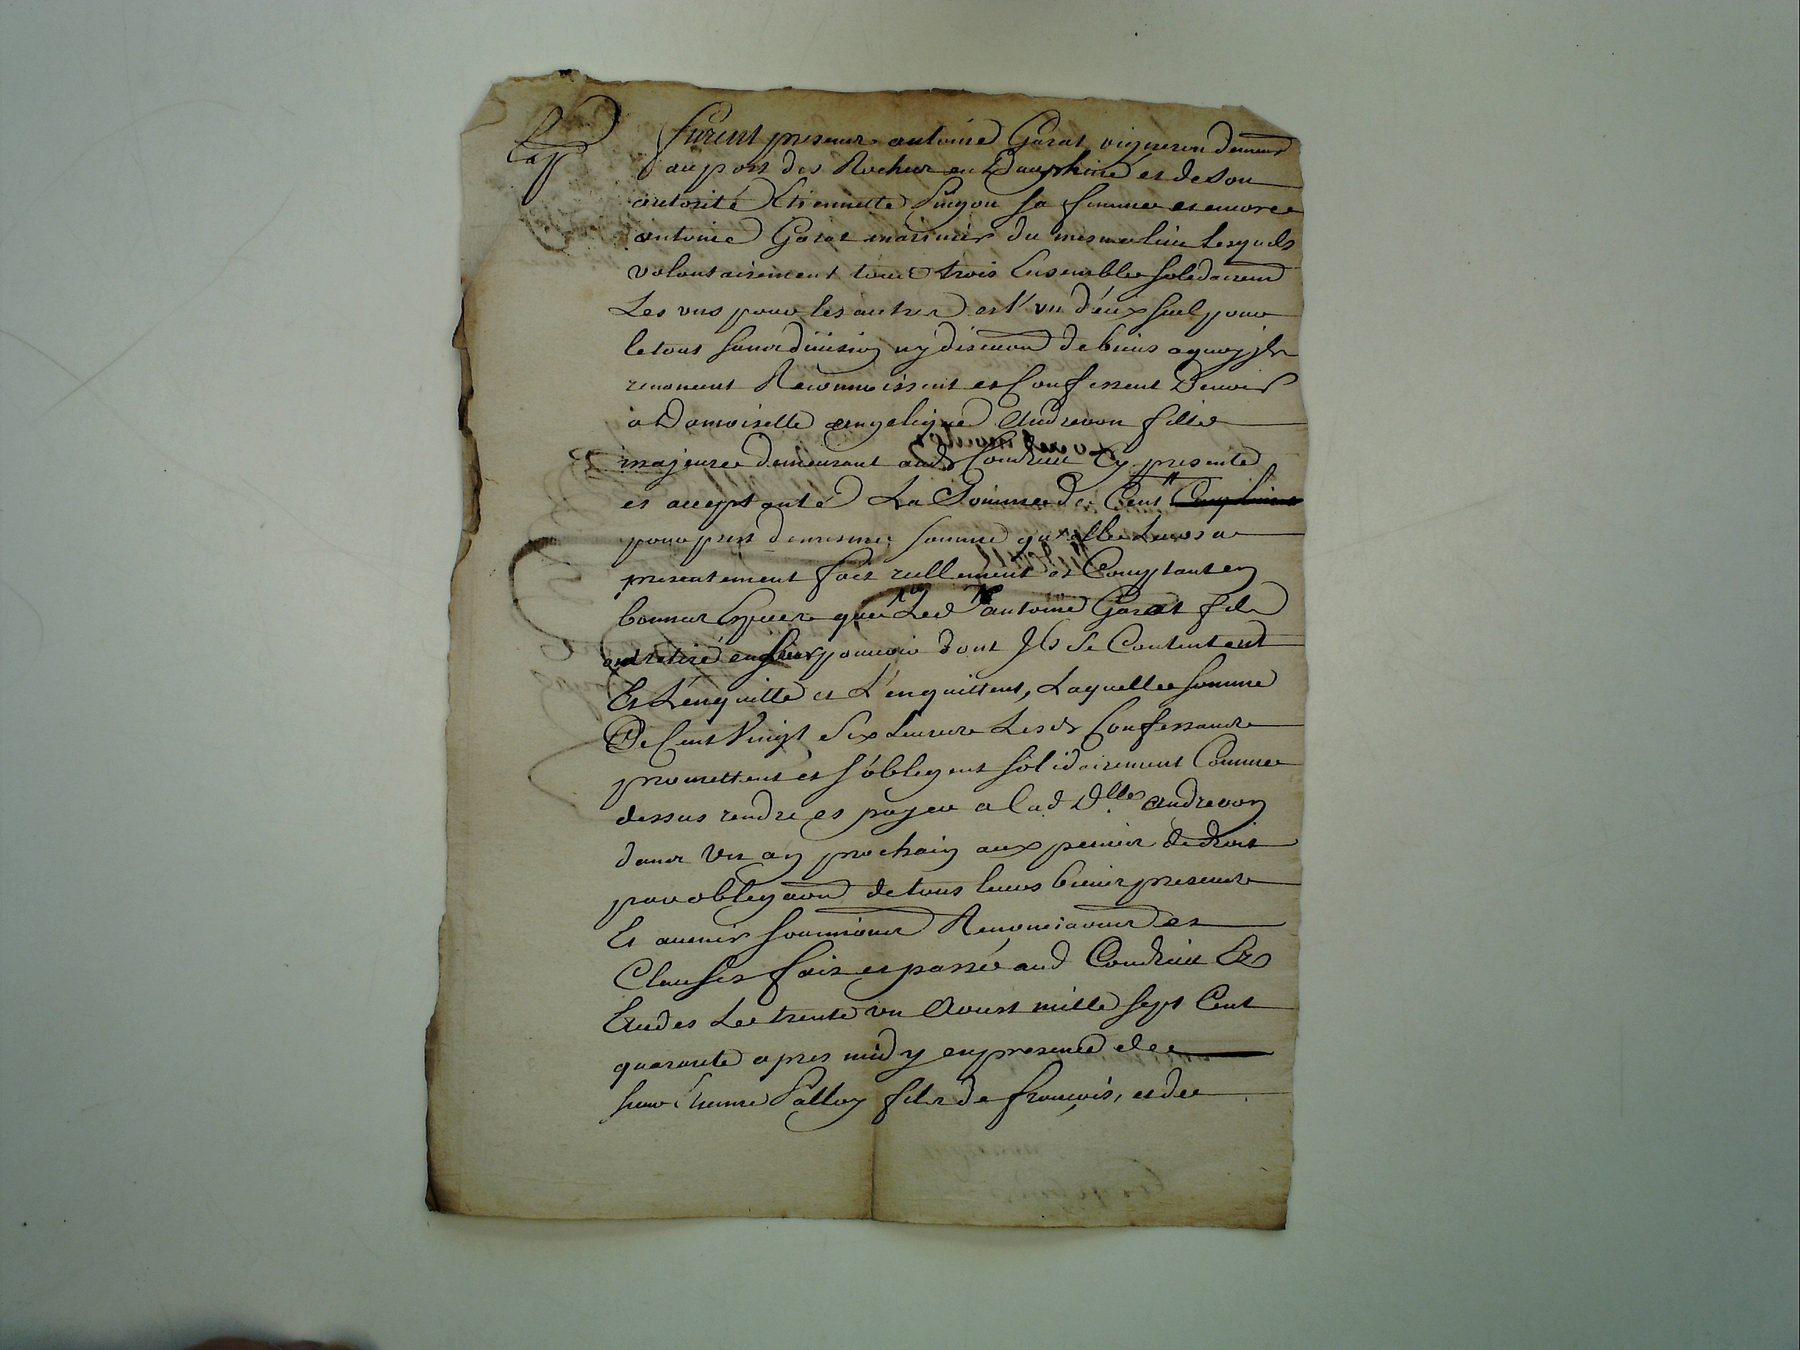 furent presens antoine Garat vigneron demeurt
au port des Rocher en Dauphiné et de son
autorité Etiennette Pinjon sa femme et encore
antoine Garat marinier du mesme lieu lesquels
volontairement tous trois Ensemble solidairemt
Les uns pour les autres et l'un d'eux seul pour
le tout sans division ny discution de biens a quoy ils
renoncent Reconnoissent et Confessent Devoir
a Damoiselle angelique Andrevon fille
majeure demeurant aud Condrieu Cy presente
et acceptante La Somme de Cent
pour prest de mesme somme qu'elle Leurs a
presentement fait reellement et Comptant en
bonnes especes que Led antoine Garat fils
retiré en leur pouvoir dont Ils se Contentent
Et L'enquitte et L'enquittent, Laquelle somme
De Cent Vingt Six Livres Lesd Confessants
promettent et s'obligent solidairement Comme
dessus rendre et payer a lad Dlle Andrevon
dans un an prochain aux peines de droit
par obligaon de tous leurs biens presents
Et avenir soumissions Renonciaons et
Clauses fait et passé aud Condrieu Ez
Etudes Le trente un Aoust mille sept Cent
quarante apres midy en presence de
sieur Etienne fils de françois, et de